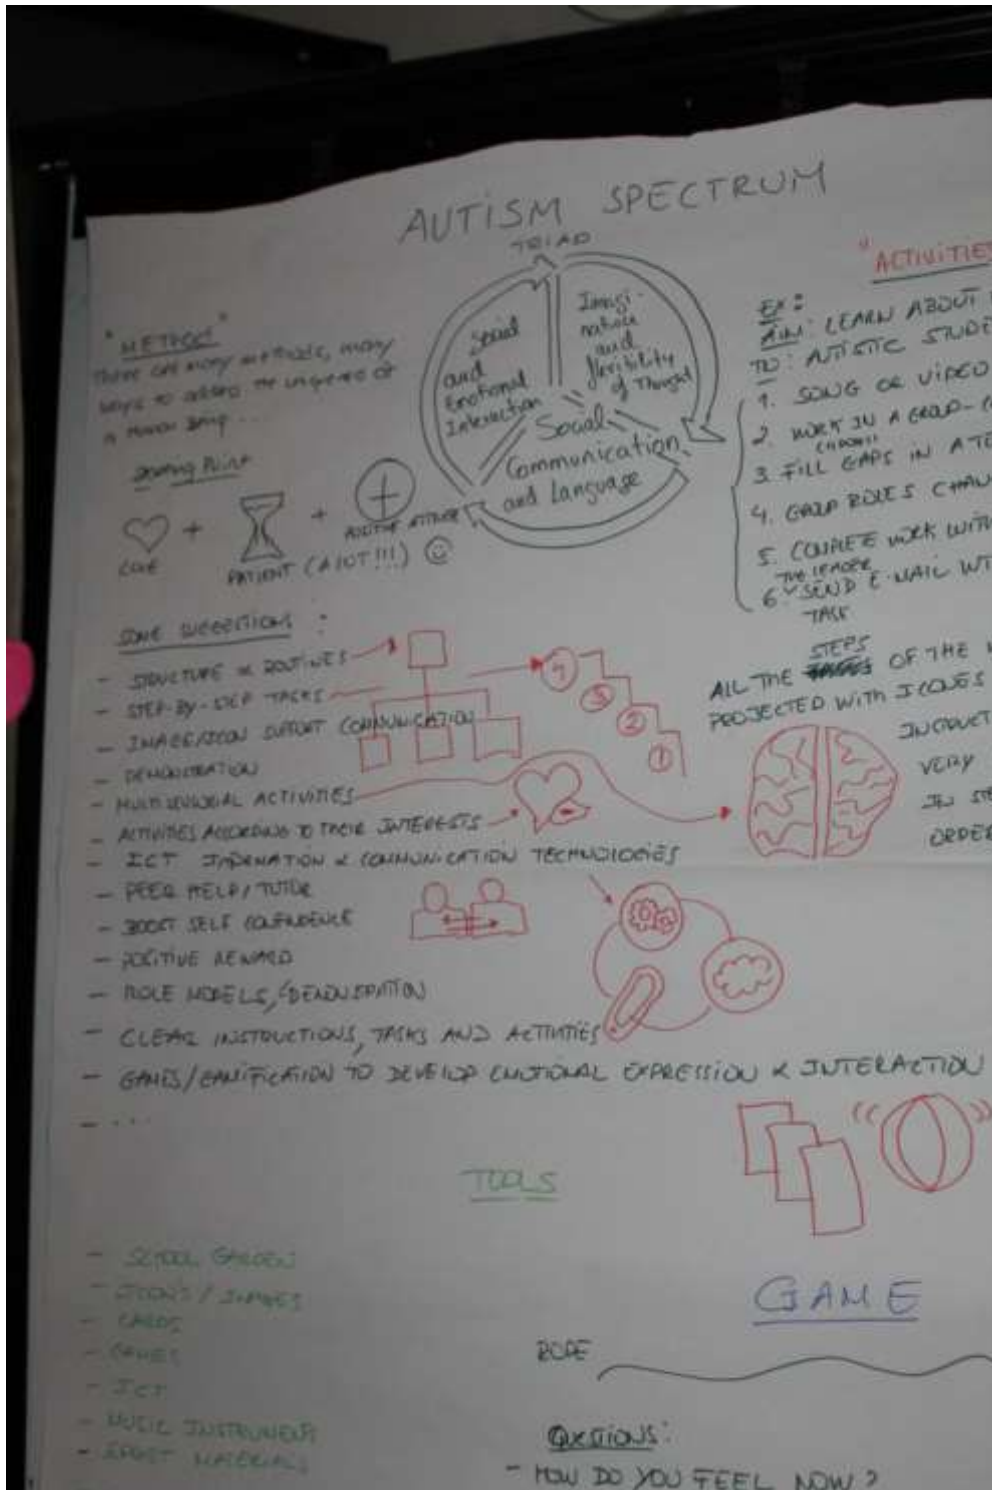 AUTISM SPECTRUM
TRIAD
Social
and
Emotional
Interaction
Imagi-
nation
and
flexibility
of Thought
Social
Communication
and Language
"METHOD"
There are many methods, many
ways to address the uniqueness of
a human being...
Starting Point
+
+
LOVE
PATIENT (A LOT!!!)
POSITIVE ATTITUDE
SOME SUGGESTIONS:
- STRUCTURE & ROUTINES
- STEP-BY-STEP TASKS
- IMAGE/ICON SUPPORT COMMUNICATION
- DEMONSTRATION
- MULTISENSORIAL ACTIVITIES
- ACTIVITIES ACCORDING TO THEIR INTERESTS
- ICT INFORMATION & COMMUNICATION TECHNOLOGIES
- PEER HELP/TUTOR
- BOOST SELF CONFIDENCE
- POSITIVE REWARD
- ROLE MODELS/
- CLEAR INSTRUCTIONS, TASKS AND ACTIVITIES
- GAMES/GAMIFICATION TO DEVELOP EMOTIONAL EXPRESSION & INTERACTION
- ...
4
3
2
1
"ACTIVITIES
EX:
AIM: LEARN ABOUT
TO: AUTISTIC STUDE
1. SONG OR VIDEO
2. WORK IN A GROUP -
3. FILL GAPS IN A TE
4. GROUP ROLES CHAN
5. COMPLETE WORK WITH
THE LEADER
6. SEND E-MAIL WIT
TASK
STEPS
ALL THE OF THE
PROJECTED WITH ICONES
INSTRUCT
VERY
IN STE
ORDER
TOOLS
- SCHOOL GARDEN
- ICONS / IMAGES
- CARDS
- GAMES
- ICT
- MUSIC INSTRUMENTS
- SPORT MATERIALS
GAME
ROPE
QUESTIONS:
- HOW DO YOU FEEL NOW?